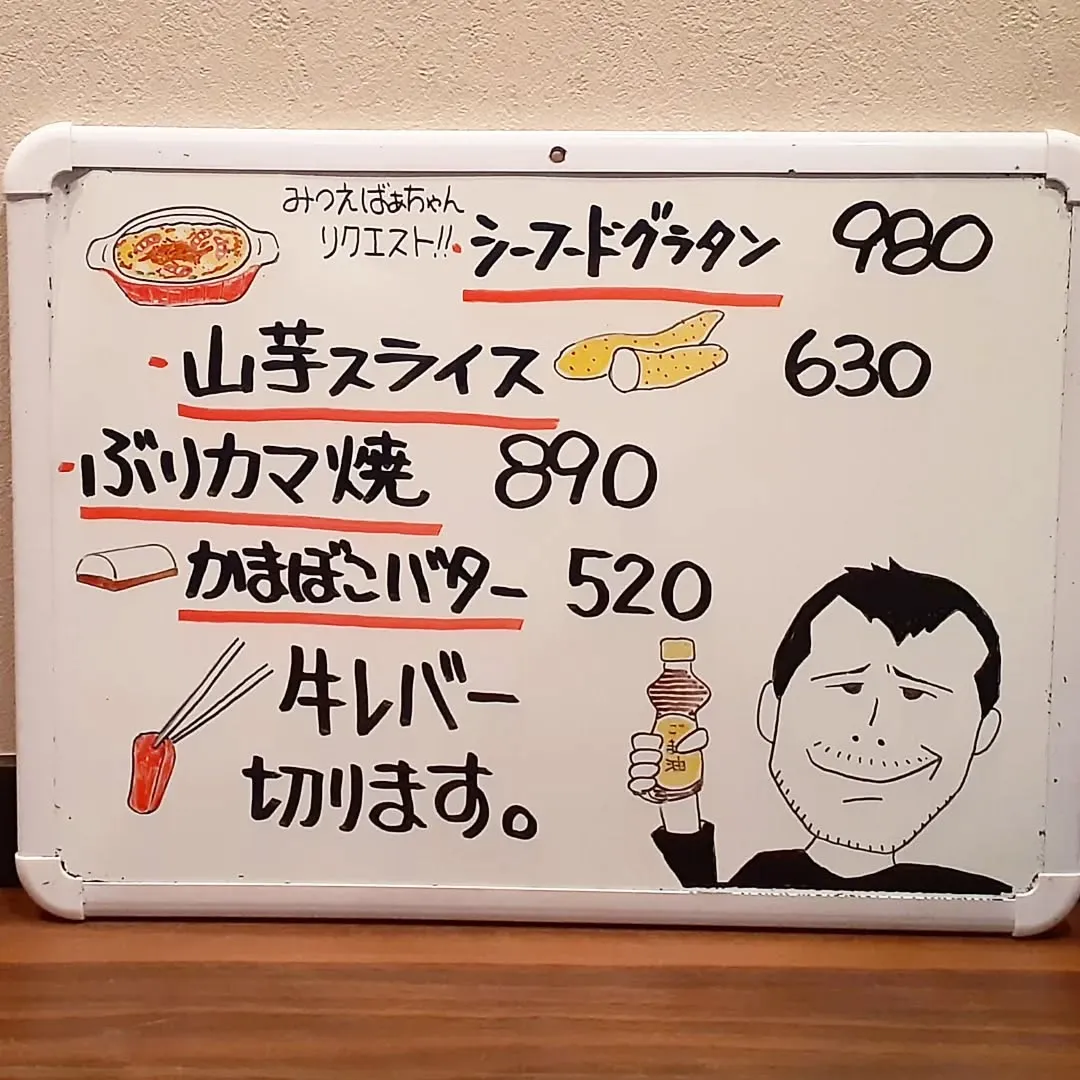 みつえばぁちゃん
リクエスト!!
・シーフードグラタン 980
・山芋スライス 630
・ぶりカマ焼 890
かまぼこバター 520
牛レバー
切ります。
ごま油